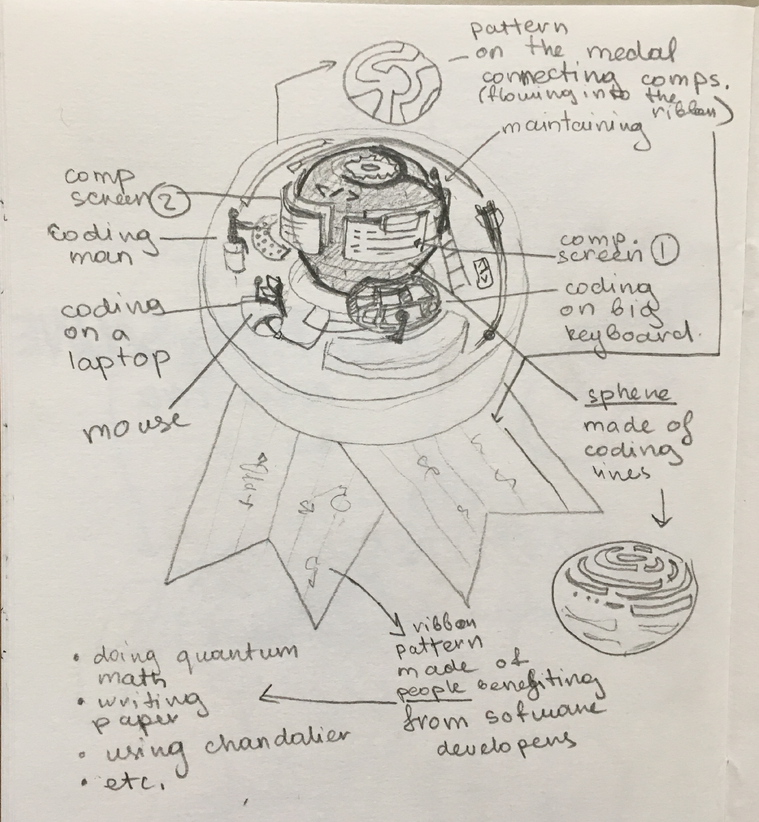 pattern
on the medal
connecting comps.
(flowing into the
ribbon)
maintaining
comp
screen ②
coding
man
coding
on a
laptop
mouse
</>
comp.
screen ①
coding
on big
keyboard.
sphene
made of
coding
lines
ribbon
pattern
made of
people benefiting
from sofware
developers
• doing quantum
math
• writing
paper
• using chandalier
• etc.